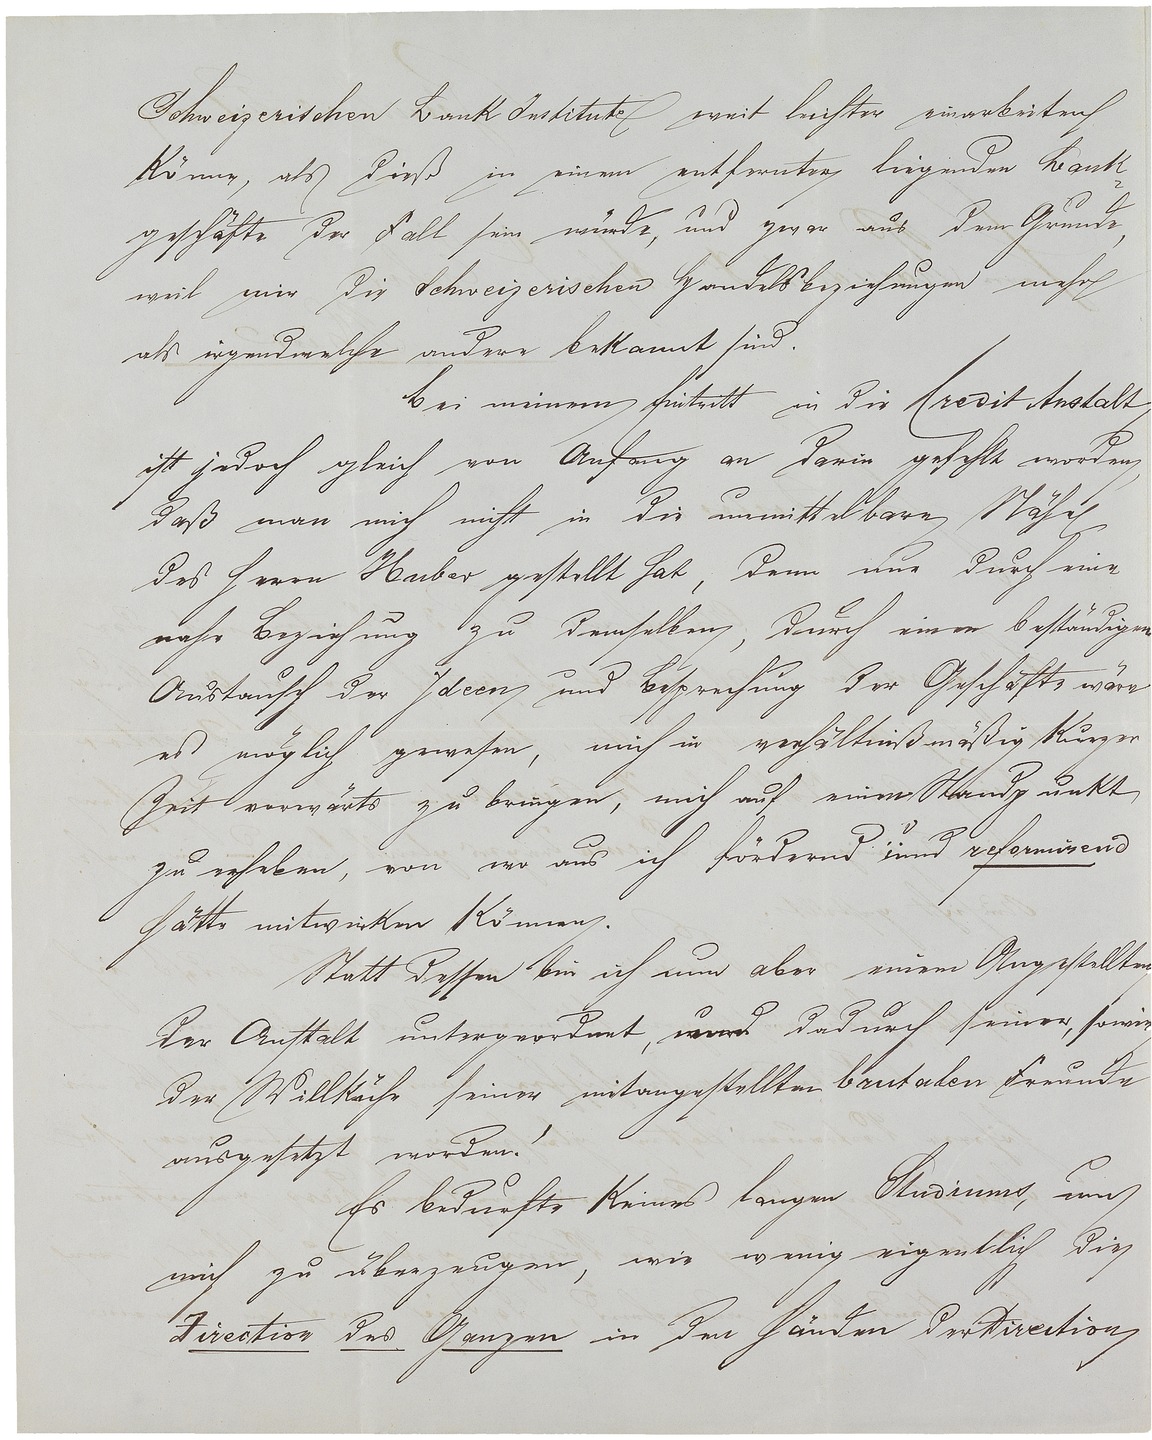 Schweizerischen Bank Institute weit leichter einarbeiten
könne, als dieß in einem entfernter liegenden Bank=
geschäfte der Fall sein würde, und zwar aus dem Grunde,
weil mir die Schweizerischen Handelsbeziehungen mehr
als irgendwelche andere bekannt sind.
Bei meinem Eintritt in die Credit Anstalt
ist jedoch gleich von Anfang an darin gefehlt worden,
daß man mich nicht in die unmittelbare Nähe
des Herrn Huber gestellt hat, denn nur durch eine
nahe Beziehung zu demselben, durch einen beständigen
Austausch der Ideen und Besprechung der Geschäfte wäre
es möglich gewesen, mich in verhältnißmäßig kurzer
Zeit vorwärts zu bringen, mich auf einen Standpunkt
zu erheben, von wo aus ich fördernd und reformirend
hätte mitwirken können.
Statt dessen bin ich nun aber einem Angestellten
der Anstalt untergeordnet, und dadurch seiner, sowie
der Willkühr seiner mitangestellten brutalen Freunde
ausgesetzt worden!
Es bedurfte keines langen Studiums, um
mich zu überzeugen, wie wenig eigentlich die
Direction des Ganzen in den Händen der Direction